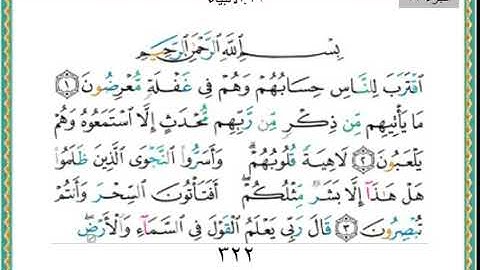 بِسْمِ اللَّهِ الرَّحْمَٰنِ الرَّحِيمِ
اقْتَرَبَ لِلنَّاسِ حِسَابُهُمْ وَهُمْ فِي غَفْلَةٍ مُّعْرِضُونَ ١
مَا يَأْتِيهِم مِّن ذِكْرٍ مِّن رَّبِّهِم مُّحْدَثٍ إِلَّا اسْتَمَعُوهُ وَهُمْ
يَلْعَبُونَ ٢ لَاهِيَةً قُلُوبُهُمْ ۗ وَأَسَرُّوا النَّجْوَى الَّذِينَ ظَلَمُوا
هَلْ هَٰذَا إِلَّا بَشَرٌ مِّثْلُكُمْ ۖ أَفَتَأْتُونَ السِّحْرَ وَأَنتُمْ
تُبْصِرُونَ ٣ قَالَ رَبِّي يَعْلَمُ الْقَوْلَ فِي السَّمَاءِ وَالْأَرْضِ ۖ
٣٢٢